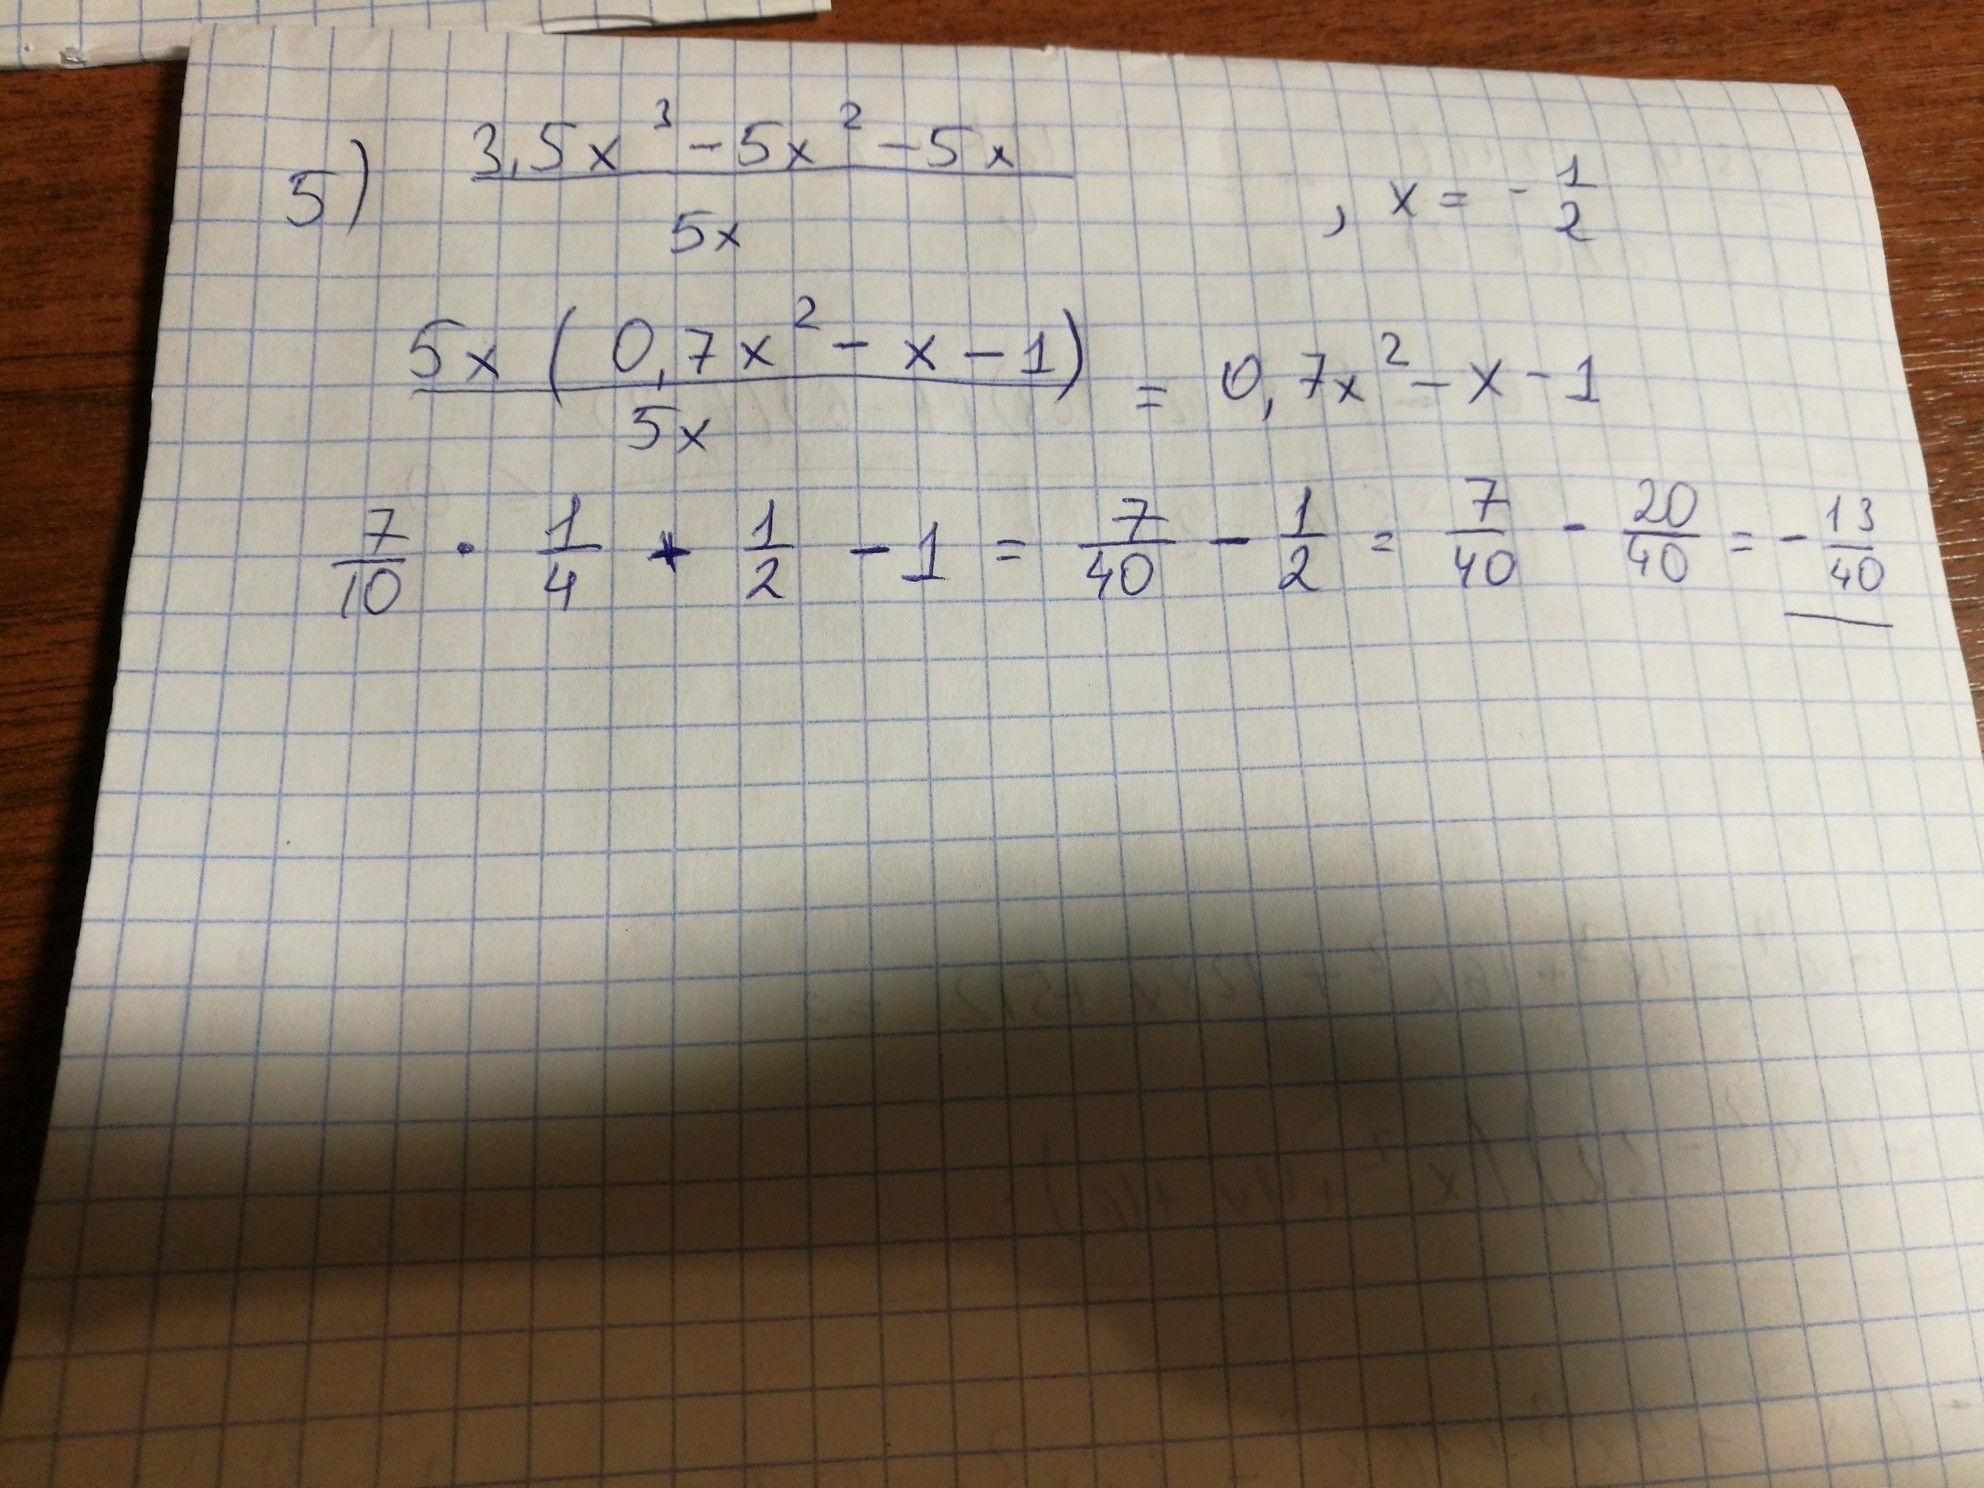 5) (3,5x³ - 5x² - 5x)/(5x) , x = -1/2
5x(0,7x² - x - 1)/(5x) = 0,7x² - x - 1
7/10 · 1/4 + 1/2 - 1 = 7/40 - 1/2 = 7/40 - 20/40 = -13/40